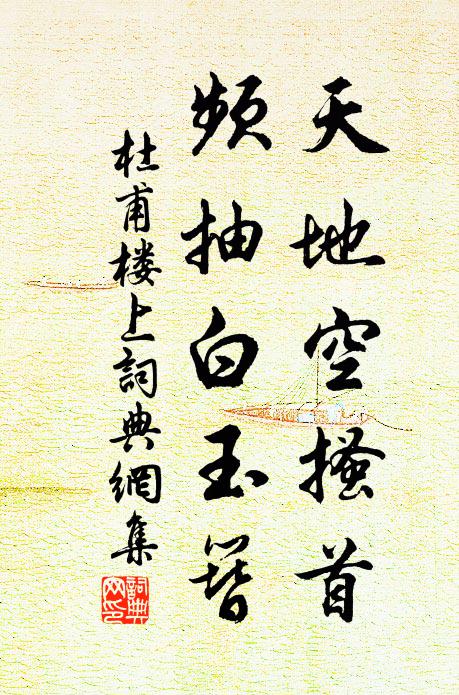 天地空搔首
頻抽白玉簪
杜甫楼上詞典網集
詞典网印